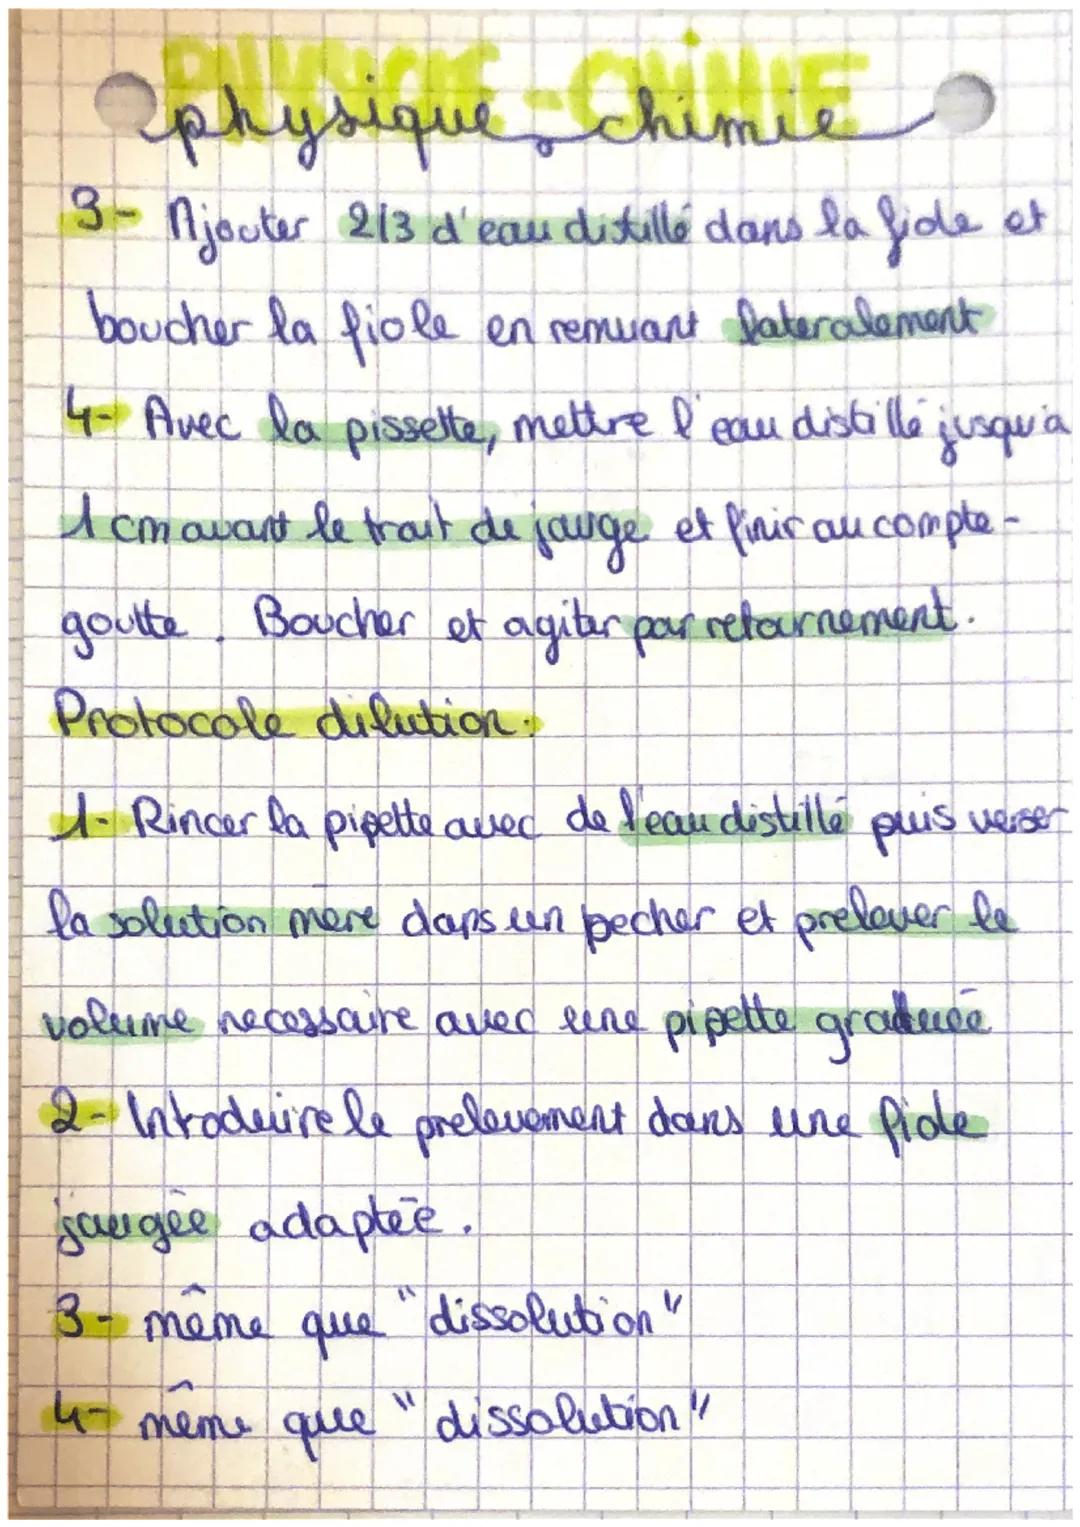 PHYSIQUE-CHIMIE
physique-chimie
3- Ajouter 2/3 d'eau distillé dans la fiole et
boucher la fiole en remuant lateralement
4- Avec la pissette, mettre l'eau distillé jusqu'a
1 cm avant le trait de jauge et finir au compte-
goutte. Boucher et agiter par retournement.
Protocole dilution:
1- Rincer la pipette avec de l'eau distillé puis verser
la solution mère dans un becher et prelever le
volume necessaire avec une pipette graduée
2- Introduire le prelevement dans une fiole
jaugée adaptée.
3- même que "dissolution"
4- même que "dissolution"